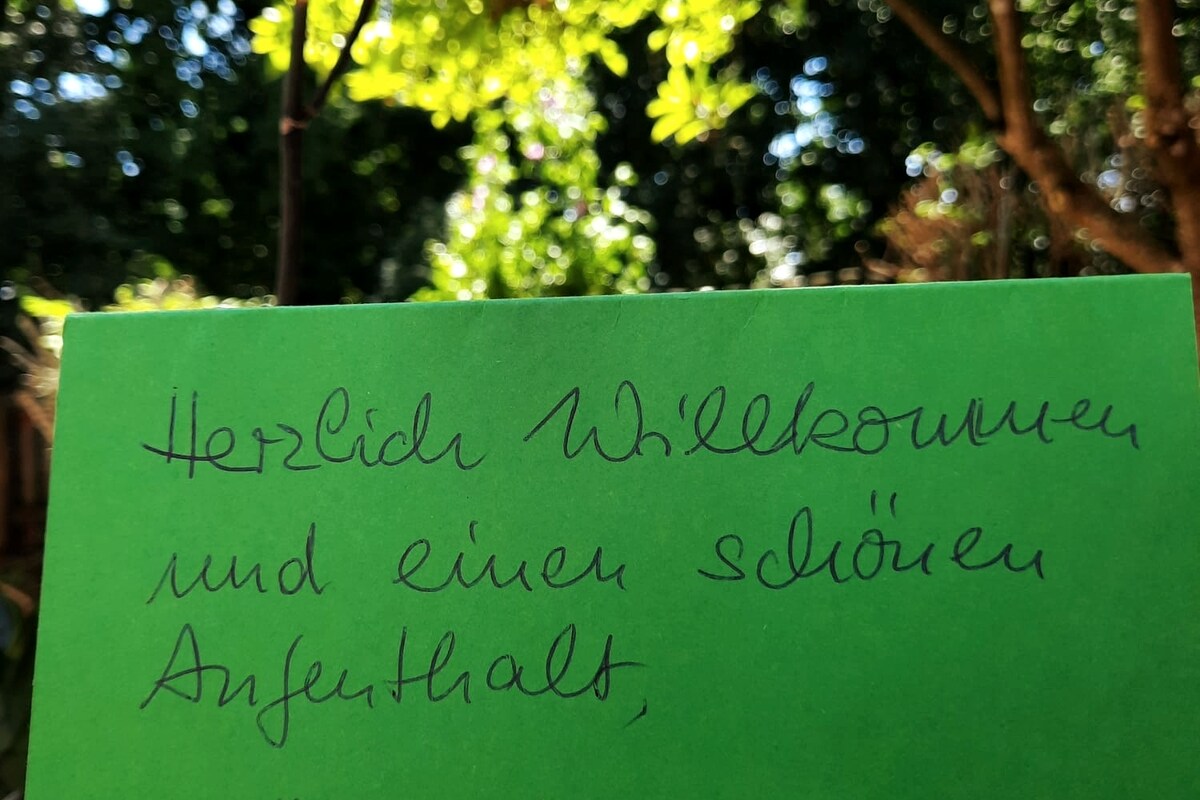 Herzlich Willkommen
und einen schönen
Aufenthalt,